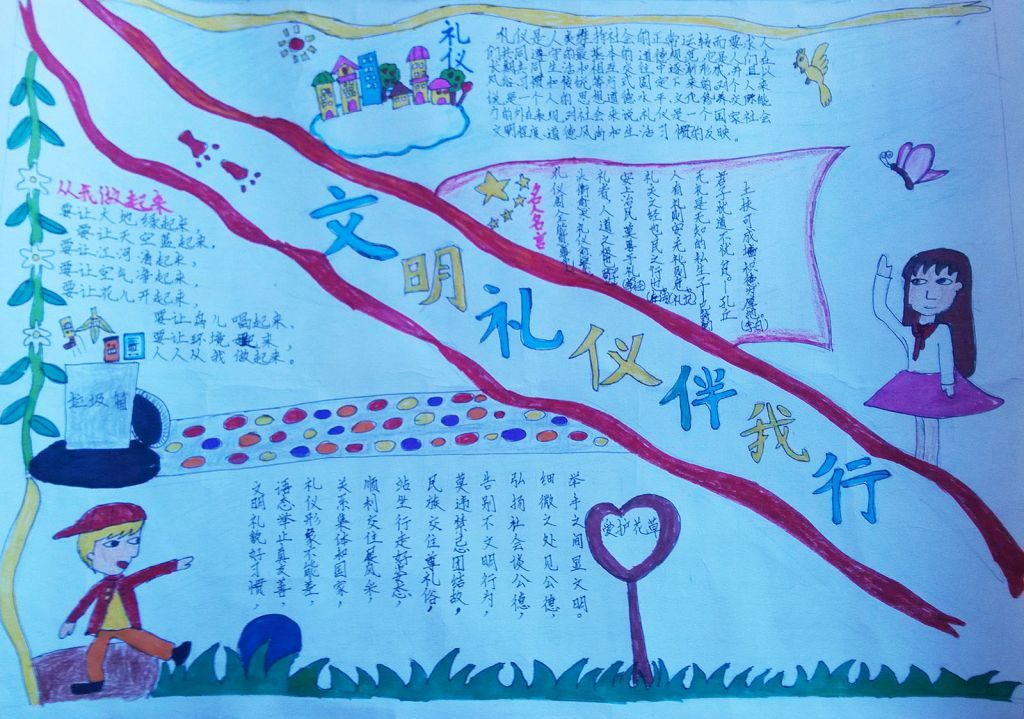 文明礼仪伴我行
礼仪
礼仪是人类维持社会的正常运转而要求人
们共同遵守的最基本的道德规范,它是人们在
长期共同生活和相互交往中逐渐形成,并且以
风俗习惯和传统等方式固定下来的。对个人来
说是一个人的思想道德水平、文化修养交际能
力的外在表现,对社会来说,礼仪是一个国家社会
文明程度、道德风尚和生活习惯的反映。
名人名言
土扶可成墙,积德为厚地。(李白)
君子忧道不忧贫。—孔丘
无礼是无知的私生子—
人有礼则安无礼则危
礼天之经也民之行也
安上治民莫善于礼
礼者,人道之
从我做起来
要让大地绿起来,
要让天空蓝起来,
要让江河清起来,
要让空气净起来,
要让花儿开起来,
要让鸟儿唱起来,
要让环境 起来,
人人从我做起来。
垃圾箱
文明礼貌好习惯,
语态举止真友善,
礼仪形象不能差,
关系集体和国家,
顺利交往展风采,
站坐行走好姿态,
民族交往尊礼俗,
莫违禁忌团结故,
告别不文明行为,
弘扬社会谈公德,
细微之处见公德,
举手之间显文明。
爱护花草